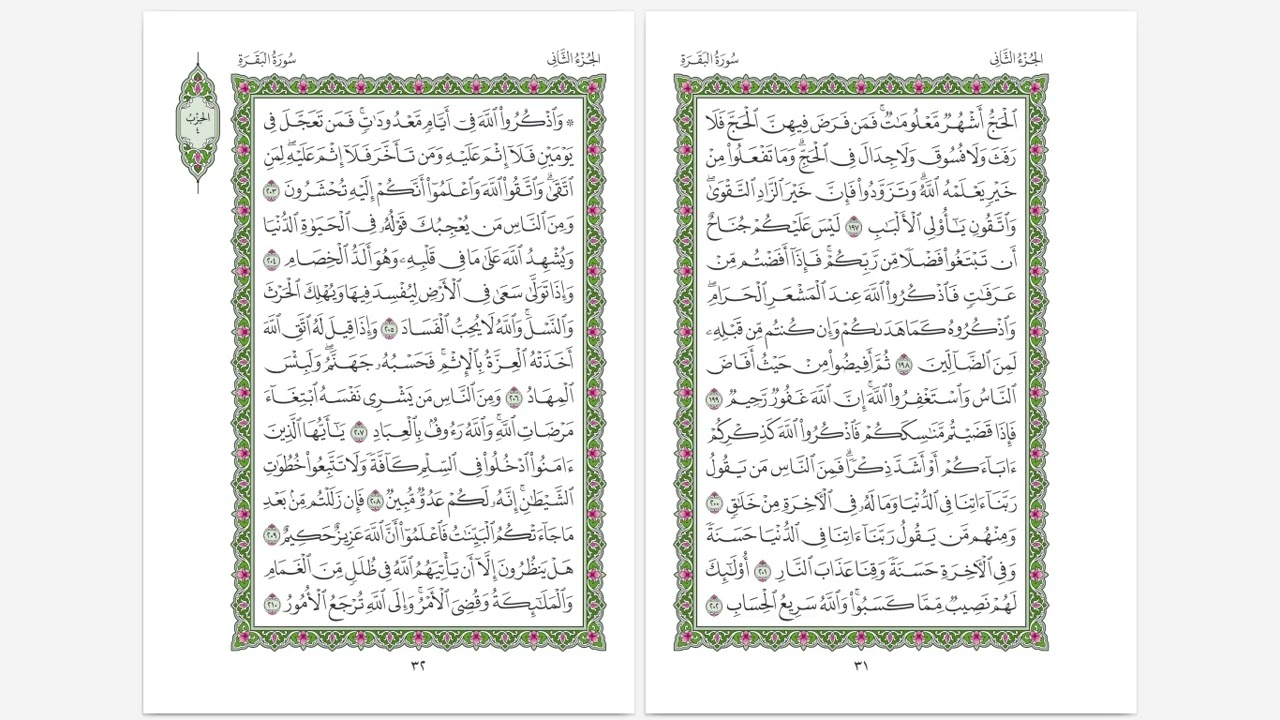 الجُزْءُ الثَّانِي
سُورَةُ البَقَرَةِ
ٱلۡحَجُّ أَشۡهُرٞ مَّعۡلُومَٰتٞۚ فَمَن فَرَضَ فِيهِنَّ ٱلۡحَجَّ فَلَا
رَفَثَ وَلَا فُسُوقَ وَلَا جِدَالَ فِي ٱلۡحَجِّۗ وَمَا تَفۡعَلُواْ مِنۡ
خَيۡرٖ يَعۡلَمۡهُ ٱللَّهُۗ وَتَزَوَّدُواْ فَإِنَّ خَيۡرَ ٱلزَّادِ ٱلتَّقۡوَىٰۖ
وَٱتَّقُونِ يَٰٓأُوْلِي ٱلۡأَلۡبَٰبِ ١٩٧ لَيۡسَ عَلَيۡكُمۡ جُنَاحٌ
أَن تَبۡتَغُواْ فَضۡلٗا مِّن رَّبِّكُمۡۚ فَإِذَآ أَفَضۡتُم مِّنۡ
عَرَفَٰتٖ فَٱذۡكُرُواْ ٱللَّهَ عِندَ ٱلۡمَشۡعَرِ ٱلۡحَرَامِۖ
وَٱذۡكُرُوهُ كَمَا هَدَىٰكُمۡ وَإِن كُنتُم مِّن قَبۡلِهِۦ
لَمِنَ ٱلضَّآلِّينَ ١٩٨ ثُمَّ أَفِيضُواْ مِنۡ حَيۡثُ أَفَاضَ
ٱلنَّاسُ وَٱسۡتَغۡفِرُواْ ٱللَّهَۚ إِنَّ ٱللَّهَ غَفُورٞ رَّحِيمٞ ١٩٩
فَإِذَا قَضَيۡتُم مَّنَٰسِكَكُمۡ فَٱذۡكُرُواْ ٱللَّهَ كَذِكۡرِكُمۡ
ءَابَآءَكُمۡ أَوۡ أَشَدَّ ذِكۡرٗاۗ فَمِنَ ٱلنَّاسِ مَن يَقُولُ
رَبَّنَآ ءَاتِنَا فِي ٱلدُّنۡيَا وَمَا لَهُۥ فِي ٱلۡأٓخِرَةِ مِنۡ خَلَٰقٖ ٢٠٠
وَمِنۡهُم مَّن يَقُولُ رَبَّنَآ ءَاتِنَا فِي ٱلدُّنۡيَا حَسَنَةٗ
وَفِي ٱلۡأٓخِرَةِ حَسَنَةٗ وَقِنَا عَذَابَ ٱلنَّارِ ٢٠١ أُوْلَٰٓئِكَ
لَهُمۡ نَصِيبٞ مِّمَّا كَسَبُواْۚ وَٱللَّهُ سَرِيعُ ٱلۡحِسَابِ ٢٠٢
٣١
الجُزْءُ الثَّانِي
سُورَةُ البَقَرَةِ
۞ وَٱذۡكُرُواْ ٱللَّهَ فِيٓ أَيَّامٖ مَّعۡدُودَٰتٖۚ فَمَن تَعَجَّلَ فِي
يَوۡمَيۡنِ فَلَآ إِثۡمَ عَلَيۡهِ وَمَن تَأَخَّرَ فَلَآ إِثۡمَ عَلَيۡهِۖ لِمَنِ
ٱتَّقَىٰۗ وَٱتَّقُواْ ٱللَّهَ وَٱعۡلَمُوٓاْ أَنَّكُمۡ إِلَيۡهِ تُحۡشَرُونَ ٢٠٣
وَمِنَ ٱلنَّاسِ مَن يُعۡجِبُكَ قَوۡلُهُۥ فِي ٱلۡحَيَوٰةِ ٱلدُّنۡيَا
وَيُشۡهِدُ ٱللَّهَ عَلَىٰ مَا فِي قَلۡبِهِۦ وَهُوَ أَلَدُّ ٱلۡخِصَامِ ٢٠٤
وَإِذَا تَوَلَّىٰ سَعَىٰ فِي ٱلۡأَرۡضِ لِيُفۡسِدَ فِيهَا وَيُهۡلِكَ ٱلۡحَرۡثَ
وَٱلنَّسۡلَۚ وَٱللَّهُ لَا يُحِبُّ ٱلۡفَسَادَ ٢٠٥ وَإِذَا قِيلَ لَهُ ٱتَّقِ ٱللَّهَ
أَخَذَتۡهُ ٱلۡعِزَّةُ بِٱلۡإِثۡمِۚ فَحَسۡبُهُۥ جَهَنَّمُۖ وَلَبِئۡسَ
ٱلۡمِهَادُ ٢٠٦ وَمِنَ ٱلنَّاسِ مَن يَشۡرِي نَفۡسَهُ ٱبۡتِغَآءَ
مَرۡضَاتِ ٱللَّهِۚ وَٱللَّهُ رَءُوفُۢ بِٱلۡعِبَادِ ٢٠٧ يَٰٓأَيُّهَا ٱلَّذِينَ
ءَامَنُواْ ٱدۡخُلُواْ فِي ٱلسِّلۡمِ كَآفَّةٗ وَلَا تَتَّبِعُواْ خُطُوَٰتِ
ٱلشَّيۡطَٰنِۚ إِنَّهُۥ لَكُمۡ عَدُوّٞ مُّبِينٞ ٢٠٨ فَإِن زَلَلۡتُم مِّنۢ بَعۡدِ
مَا جَآءَتۡكُمُ ٱلۡبَيِّنَٰتُ فَٱعۡلَمُوٓاْ أَنَّ ٱللَّهَ عَزِيزٌ حَكِيمٌ ٢٠٩
هَلۡ يَنظُرُونَ إِلَّآ أَن يَأۡتِيَهُمُ ٱللَّهُ فِي ظُلَلٖ مِّنَ ٱلۡغَمَامِ
وَٱلۡمَلَٰٓئِكَةُ وَقُضِيَ ٱلۡأَمۡرُۚ وَإِلَى ٱللَّهِ تُرۡجَعُ ٱلۡأُمُورُ ٢١٠
الحِزْبُ
٤
٣٢